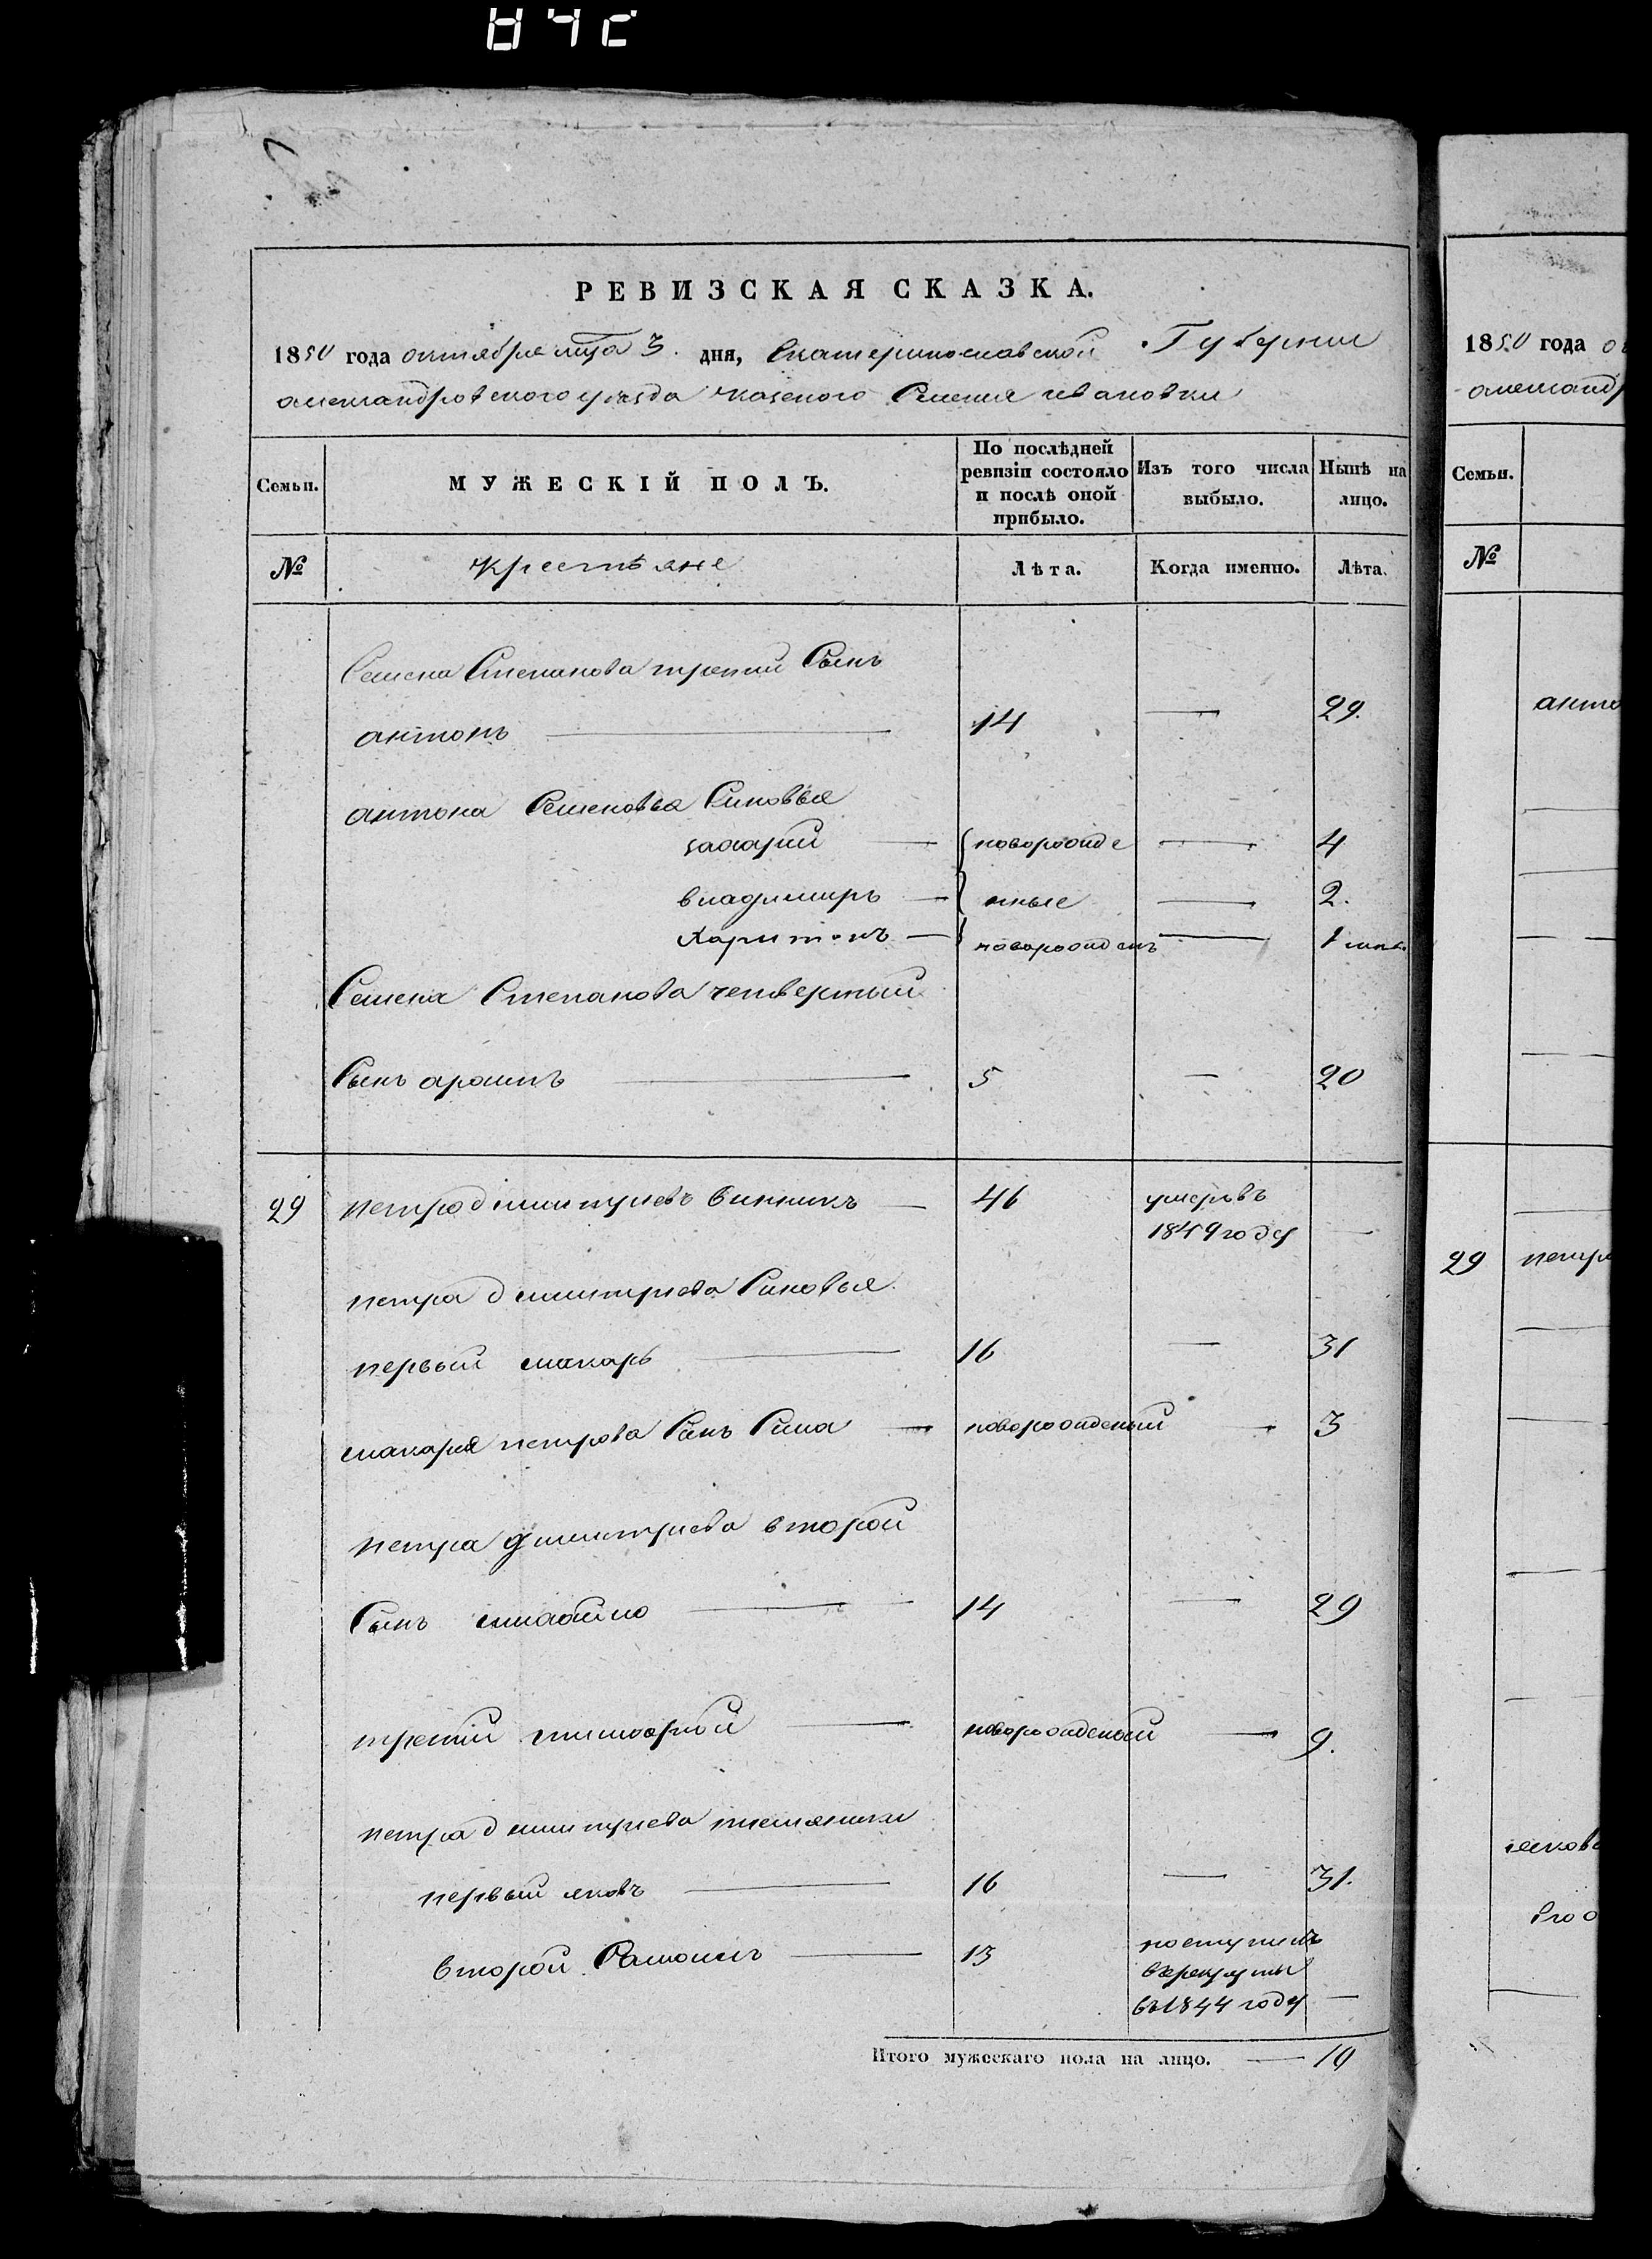 РЕВИЗСКАЯ СКАЗКА.
1850 года октября мца 3. дня, Екатеринославской Губернии
александровского уезда казеного Селения ивановки
Семьи. МУЖЕСКІЙ ПОЛЪ. По послѣдней ревизіи состояло и послѣ оной прибыло. Изъ того числа выбыло. Нынѣ на лицо.
№ крестьяне Лѣта. Когда именно. Лѣта.
Семена Степанова третий Сынъ
антонъ — 14 — 29.
антона Семеновва Синовья
захарий — новорожде — 4
владимиръ — нные — 2.
Харитонъ — новорожденъ — 1
Семена Степанова четвертый
Сынъ — 5 — 20
29 петро димитриевъ винникъ — 46 умеръ въ
1849 году —
петра димитриева Синовья
первый макаръ — 16 — 31
макара петрова Синъ Сила — новорожденый — 3
петра димитриева второй
Сынъ михайло — 14 — 29
третий тимофей — новорожденый — 9.
петра димитриева племяники
первый яковъ — 16 — 31.
второй Самоилъ — 13 поступилъ
врекруты
въ 1844 году —
Итого мужескаго пола на лицо. — 10
1850 года
александр
Семьи.
№
анто
29 петра